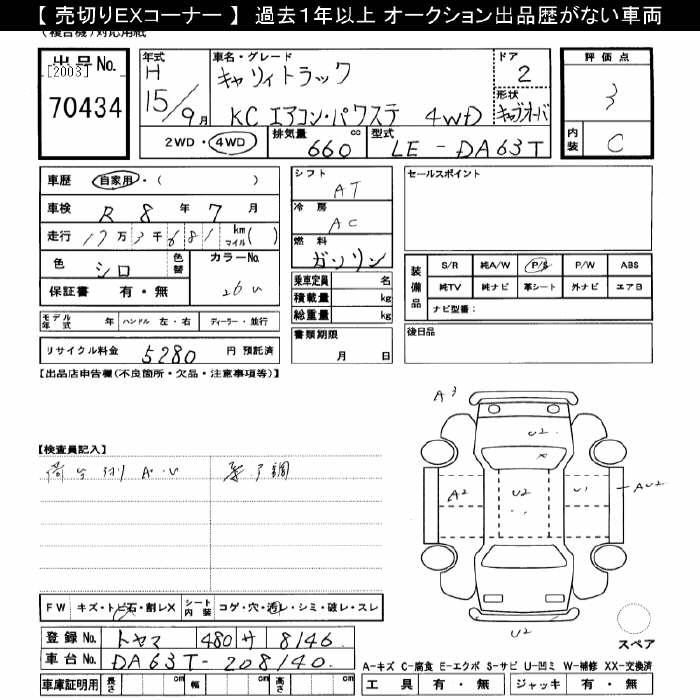 【 売切りEXコーナー 】 過去1年以上 オークション出品歴がない車両
(複合機)対応用紙
出品No.
[2003]
70434
年式
H
15/9月
車名・グレード
キャリィトラック
KC エアコン・パワステ 4WD
ドア
2
形状
キャブオーバ
評価点
3
内装
C
2WD・4WD
排気量 660 cc
型式 LE-DA63T
車歴 自家用・( )
車検 R 8 年 7 月
走行 17万3千681 km マイル( )
色 シロ
色替
カラーNo.
26U
保証書 有・無
シフト
AT
冷房
AC
燃料
ガソリン
乗車定員 名
積載量 kg
総重量 kg
セールスポイント
装備品
S/R 純A/W P/S P/W ABS
純TV 純ナビ 革シート 外ナビ エアB
ナビ型番：
モデル年式 年 ハンドル 左・右 ディーラー・並行
リサイクル料金 5280 円 預託済
書類期限
月 日
後日品
【出品店申告欄(不良箇所・欠品・注意事項等)】
【検査員記入】
荷台 A・U
A3
U2
A2 U2 U1 AU2
U2
FW キズ・トビ石・割レX シート内装 コゲ・穴・汚レ・シミ・破レ・スレ
登録No. トヤマ 480 サ 8146
車台No. DA63T-208140
車庫証明用 長さ cm 幅 cm 高さ cm
スペア
A-キズ C-腐食 E-エクボ S-サビ U-凹ミ W-補修 XX-交換済
工具 有・無 ジャッキ 有・無